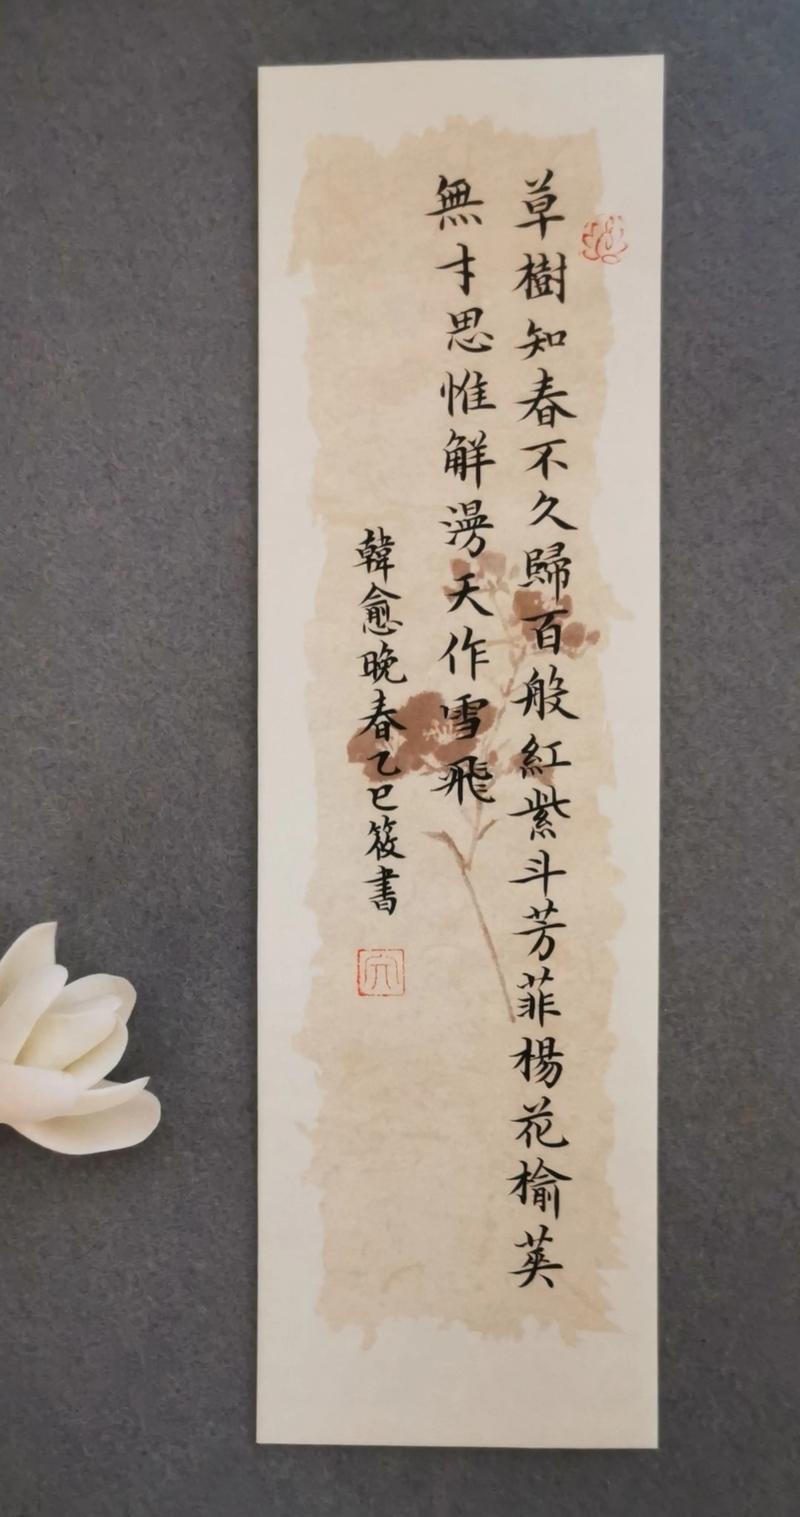 草樹知春不久歸百般紅紫斗芳菲楊花榆莢
無才思惟解漫天作雪飛
韓愈晚春乙巳筱書